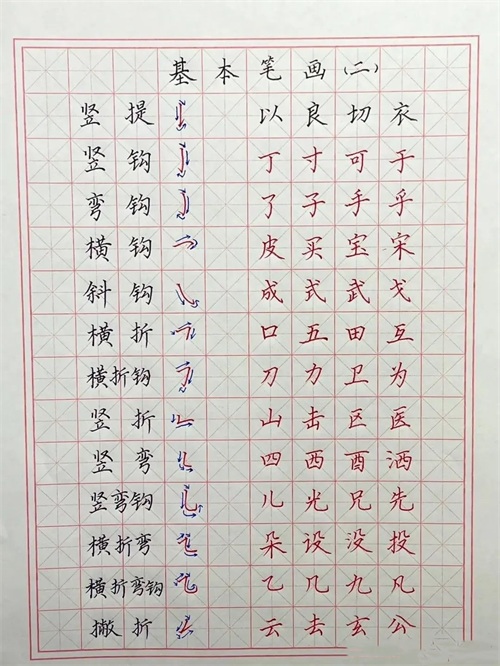 基本笔画(二)
竖提 以良切衣
竖钩 丁寸可于
弯钩 了子手乎
横钩 皮买宝宋
斜钩 成式武戈
横折 口五田互
横折钩 刀力卫为
竖折 山击区医
竖弯 四西酉洒
竖弯钩 儿光兄先
横折弯 朵设没投
横折弯钩 乙几九凡
撇折 云去玄公